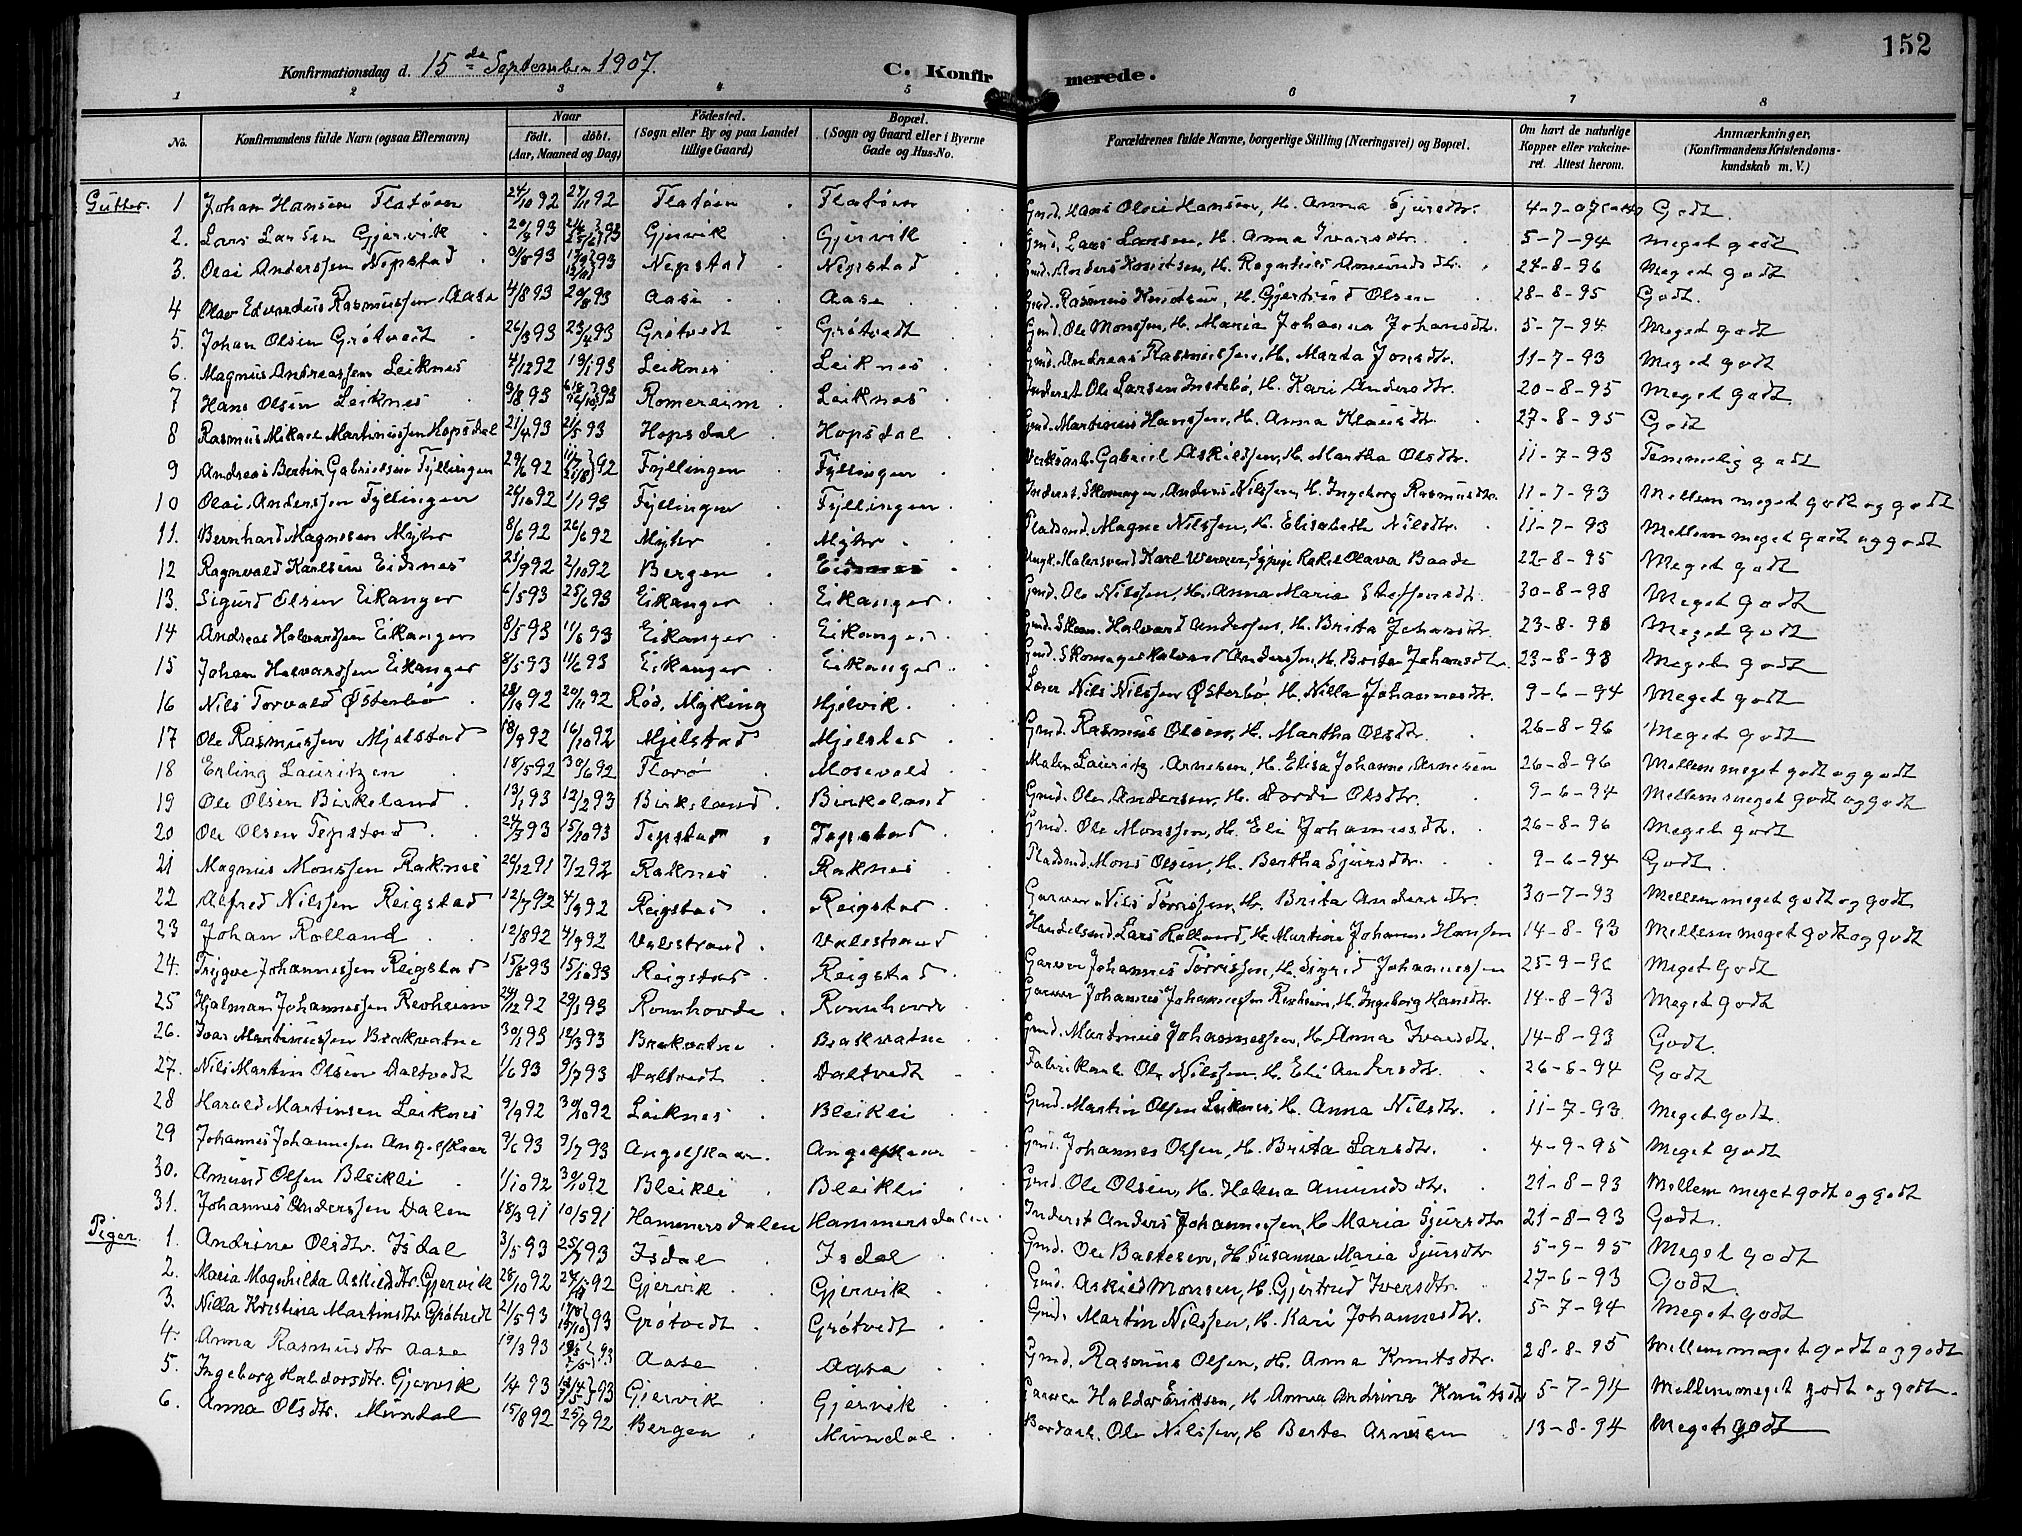 152
Konfirmationsdag d. 15de September 1907.
C. Konfirmerede.
1 2 3 4 5 6 7 8
No. Konfirmandens fulde Navn (ogsaa Efternavn) Naar født. døbt. (Aar, Maaned og Dag) Fødested. (Sogn eller By og paa Landet tillige Gaard) Bopæl. (Sogn og Gaard eller i Byerne Gade og Hus-No.) Forældrenes fulde Navne, borgerlige Stilling (Næringsvei) og Bopæl. Om havt de naturlige Kopper eller vakcineret. Attest herom. Anmærkninger, (Konfirmandens Kristendomskundskab m. V.)
Gutter. 1 Johan Hansen Flatøen 24/10 92 27/11 92 Flatøen Flatøen Gmd. Hans Olai Hansen, H. Anna Sjursdtr. 4-7-07 Godt.
2. Lars Larsen Gjervik 93 93 Gjervik Gjervik Gmd. Lars Larsen, H. Anna Ivarsdtr. 5-7-94 Meget godt
3. Olai Anderssen Nepstad 93 93 Nepstad Nepstad Gmd. Anders Knutsen, H. Ragnhild Amundsdtr. 24-8-96 Meget godt
4 Olav Edvardius Rasmussen Aase 4/8 93 20/8 93 Aase Aase Gmd. Rasmus Knudsen, H. Gjertrud Olsen 28-8-95 Godt.
5. Johan Olsen Grøtvedt 26/3 93 23/4 93 Grøtvedt Grøtvedt Gmd. Ole Monssen, H. Maria Johanna Johansdtr. 5-7-94 Meget godt
6. Magnus Andreassen Leiknes 4/12 92 19/1 93 Leiknes Leiknes Gmd. Andreas Rasmussen, H. Marta Jonsdtr. 11-7-93 Meget godt
7 Hans Olsen Leiknes 9/8 93 93 Romereim Leiknes Inderst Ole Larsen Instebø, H. Kari Andersdtr. 20-8-95 Meget godt.
8 Rasmus Mikael Martinussen Hopsdal 21/4 93 21/5 93 Hopsdal Hopsdal Gmd. Martinus Hanssen, H. Anna Klausdtr. 27-8-95 Godt
9 Andreas Bertin Gabrielsen Fyllingen 29/6 92 92 Fyllingen Fyllingen Gabriel Askildsen, H. Martha Olsdtr. 11-7-93 Temmelig godt
10 Olai Anderssen Fyllingen 26/10 92 1/1 93 Fyllingen Fyllingen Inderst, Skomager Anders Nilssen, H. Ingeborg Rasmusdtr. 11-7-93 Mellem meget godt og godt
11. Bernhard Magnesen Myhr 8/6 92 26/6 92 Myhr Myhr Pladsmd. Magne Nilssen, H. Elisabeth Nilsdtr. 11-7-93 Mellem meget godt og godt
12 Ragnvald Karlsen Eidsnes 25/9 92 2/10 92 Bergen Eidsnes Ungk. Malersvend Karl Werner, Pige Rakel Olava Baade 22-8-95 Meget godt
13. Sigurd Olsen Eikanger 6/5 93 25/6 93 Eikanger Eikanger Gmd. Ole Nilssen, H. Anna Maria Steffensdtr. 30-8-98 Meget godt
14 Andreas Halvardsen Eikanger 8/5 93 11/6 93 Eikanger Eikanger Gmd. Skom. Halvard Andersen, H. Brita Johansdtr. 23-8-98 Meget godt
15 Johan Halvardssen Eikanger 8/5 93 11/6 93 Eikanger Eikanger Gmd. Skomager Halvard Anderssen, H. Brita Johansdtr. 23-8-98 Meget godt
16 Nils Torvald Østerbø 28/10 92 20/11 92 Rød, Myking Hjelvik Lærer Nils Nilssen Østerbø, H. Nilla Johannesdtr. 9-6-94 Meget godt
17 Ole Rasmussen Mjelstad 18/9 92 16/10 92 Mjelstad Mjelstad Gmd. Rasmus Olsen, H. Martha Olsdtr. 26-8-96 Meget godt
18 Erling Lauritzen 18/5 92 30/6 92 Florø Mosevold Maler Lauritz Arnesen, H. Elisa Johanne Arnesen 26-8-96 Mellem meget godt og godt
19 Ole Olsen Birkeland 13/1 93 12/2 93 Birkeland Birkeland Gmd. Ole Andersen, H. Dorde Olsdtr. 9-6-94 Mellem meget godt og godt
20 Ole Olsen Tepstad 24/9 93 15/10 93 Tepstad Tepstad Gmd. Ole Monssen, H. Eli Johannesdtr. 26-8-96 Meget godt
21 Magnus Monssen Raknes 26/12 91 7/2 92 Raknes Raknes Pladsmd. Mons Olsen, H. Bertha Sjursdtr. 9-6-94 Godt.
22 Alfred Nilssen Reigstad 12/7 92 4/9 92 Reigstad Reigstad Garver Nils Torrissen, H. Brita Andersdtr. 30-7-93 Mellem meget godt og godt
23 Johan Rolland 12/8 92 4/9 92 Valestrand Valestrand Handelsmd. Lars Rolland, H. Martine Johanne Hansen 14-8-93 Mellem meget godt og godt
24. Trygve Johannessen Reigstad 15/8 93 15/10 93 Reigstad Reigstad Garver Johannes Torrissen, H. Sigrid Johannessen 25-9-96 Meget godt
25 Hjalmar Johannessen Revheim 24/12 92 29/1 93 Romhovde Romhovde Garver Johannes Johannessen Revheim, H. Ingeborg Hansdtr. 14-8-93 Meget godt
26. Ivar Martinussen Brakvatne 30/1 93 12/3 93 Brakvatne Brakvatne Gmd. Martinus Johannessen, H. Anna Ivarsdtr. 14-8-93 Godt.
27. Nils Martin Olsen Daltvedt 1/6 93 9/7 93 Daltvedt Daltvedt Fabrikarb. Ole Nilssen, H. Eli Andersdtr. 26-6-94 Godt
28 Harald Martinsen Leiknes 9/9 92 30/10 92 Leiknes Bleikli Gmd. Martin Olsen Leiknes, H. Anna Nilsdtr. 11-7-93 Meget godt.
29 Johannes Johannesen Angelskaar 9/6 93 9/7 93 Angelskaar Angelskaar Gmd. Johannes Olsen, H. Brita Larsdtr. 4-9-95 Meget godt
30. Amund Olsen Bleikli 1/10 92 30/10 92 Bleikli Bleikli Gmd. Ole Olsen, H. Helena Amundsdtr. 21-8-93 Mellem meget godt og godt
31. Johannes Anderssen Dalen 18/3 91 10/5 91 Hammersdalen Hammersdalen Inderst Anders Johannessen, H. Maria Sjursdtr. 21-8-93 Godt.
Piger. 1. Andrine Olsdtr. Isdal 3/5 93 25/7 93 Isdal Isdal Gmd. Ole Bastesen, H. Susanna Maria Sjursdtr. 5-9-95 Meget godt
2. Maria Magnhilda Askildsdtr. Gjervik 28/10 92 92 Gjervik Gjervik Gmd. Askild Monsen, H. Gjertrud Iversdtr. 27-6-93 Godt.
3. Nilla Kristina Martinsdtr. Grøtvedt 21/5 93 93 Grøtvedt Grøtvedt Gmd. Martin Nilssen, H. Kari Johannesdtr. 5-7-94 Meget godt
4. Anna Rasmusdtr. Aase 19/3 93 93 Aase Aase Gmd. Rasmus Olsen, H. Anna Knutsdtr. 28-8-95 Mellem meget godt og godt
5. Ingeborg Haldorsdtr. Gjervik 1/4 93 93 Gjervik Gjervik Garver Haldor Eriksen, H. Anna Andrina Knutsdtr 5-7-94 Mellem meget godt og godt.
6. Anna Olsdtr. Mundal 15/8 92 25/9 92 Bergen Mundal Bordarb. Ole Nilssen, H. Berte Arnesen 13-8-94 Meget godt